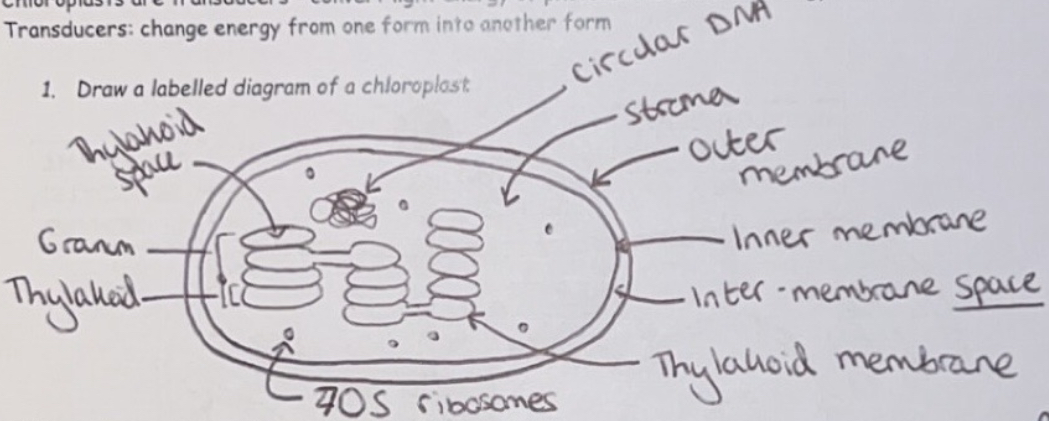 Transducers: change energy from one form into another form
1. Draw a labelled diagram of a chloroplast
circular DNA
stroma
Thylakoid
space
outer
membrane
Granum
Inner membrane
Thylakoid
Inter-membrane space
Thylakoid membrane
70S ribosomes